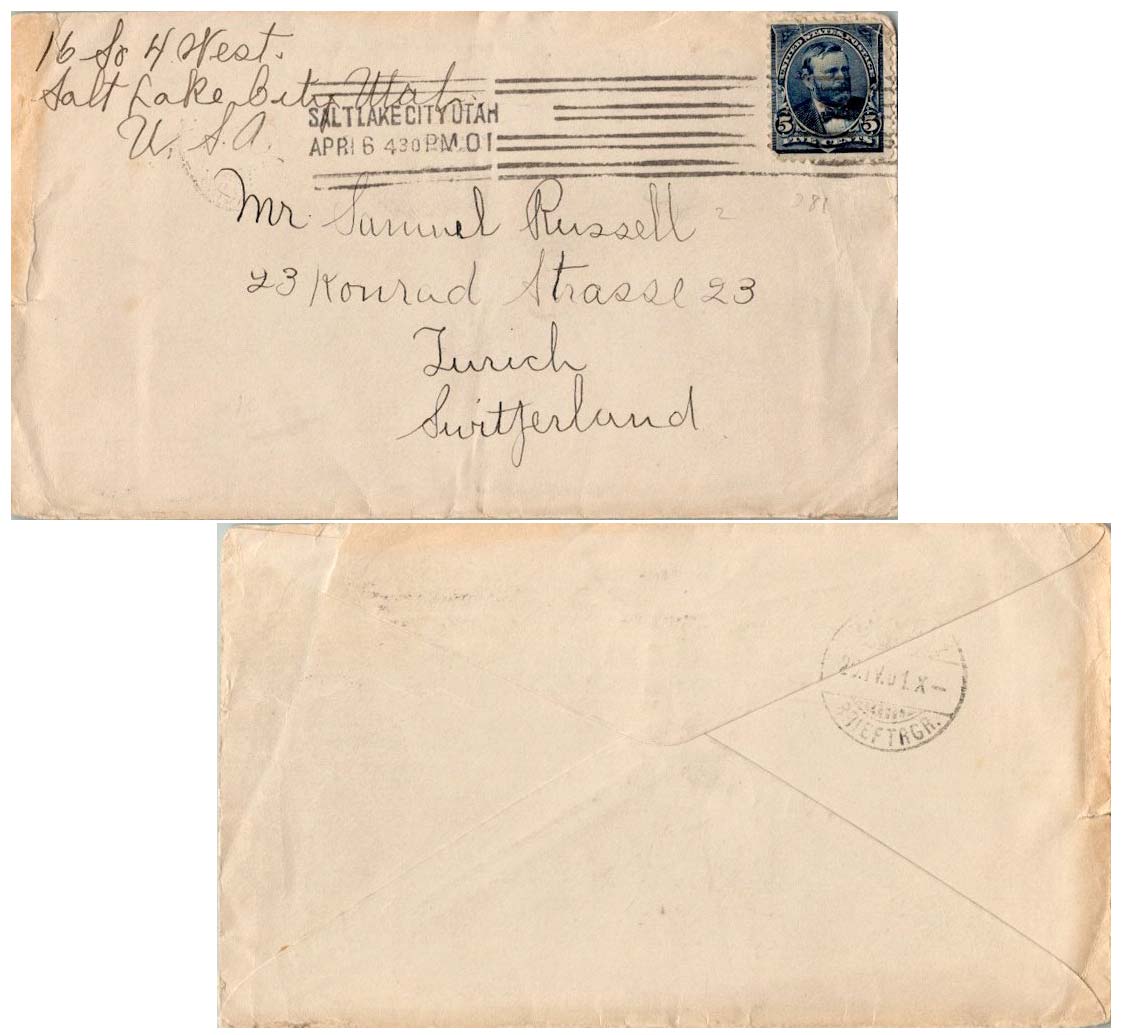 16 So 4 West.
Salt Lake City Utah
U. S. A.
SALT LAKE CITY UTAH
APR 16 430 PM 01
UNITED STATES POSTAGE
5 5
FIVE CENTS
Mr. Samuel Russell
23 Konrad Strasse 23
Zurich
Switzerland
281
2
IV.01.X–
BRIEFTRGR.